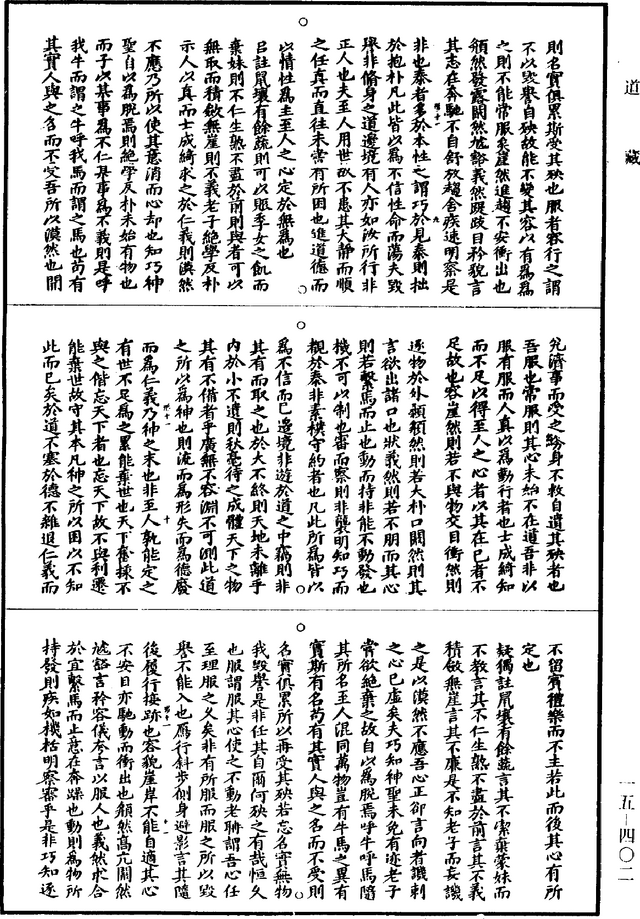 道藏
則名實俱累斯受其殃也服者容行之謂
不以毀譽自殃故能不變其容以有爲爲
之則不能常服矣崖然進趨不安衝出也
頯然發露闞然虓豁義然踶跂目矜貌言
其志在奔馳不自舒放趨舍疾速明察是
非也泰者多於本性之謂巧於見泰則拙
於抱朴凡此皆以爲不信性命而蕩夫毀
譽非脩身之道邊境有人亦如汝所行非
正人也夫至人用世故不患其大靜而順
之任真而直往未嘗有所困也進道德而
以情性爲主至人之心定於無爲也
呂註鼠壤有餘蔬則可以賑季女之飢而
棄妹則不仁生熟不盡於前則與者可以
無取而積斂無崖則不義老子絕學反朴
示人以真而士成綺求之於仁義則漠然
不應乃所以使其意消而心却也知巧神
聖自以爲脫焉則絕學反朴未始有物也
而子以某事爲不仁某事爲不義則是呼
我牛而謂之牛呼我馬而謂之馬也苟有
其實人與之名而不受吾所以漠然也開
兌濟事而受之終身不救自遺其殃者也
吾服也常服則其心未始不在道吾非以
服有服而人真以爲動行者也士成綺知
而不足以得至人之心者以其在已者不
足故也容崖然則若不與物交目衝然則
逐物於外顙頯然則若大朴口闞然則其
言欲出諸口也狀義然則若不朋而其心
則若繫馬而止也動而持非能不動發也
機不可以制也審而察則非襲明知巧而
覩於泰非素樸守約者也凡此所爲皆以
爲不信而已邊境非遊於道之中竊則非
其有而取之也於大不終則天地未離乎
內於小不遺則秋毫待之成體天下之物
其有不備者乎廣無不容淵不可測此道
之所以爲神也則流而爲形失而爲德廢
而爲仁義乃神之末也非至人孰能定之
有世不足爲之累能棄世也天下奮棅不
與之偕忘天下者也忘天下故不與利遷
能棄世故守其本凡神之所以困以不知
此而已矣於道不塞於德不離退仁義而
不留賓禮樂而不主若此而後其心有所
定也
疑獨註鼠壤有餘蔬言其不潔棄蒙妹而
不教言其不仁生熟不盡於前言其不義
積斂無崖言其不廉是不知老子而妄譏
之是以漠然不應吾心正卻言向者譏刺
之心已虛矣夫巧知神聖未免有迹老子
嘗欲絕棄之故自以爲脫焉呼牛呼馬隨
其所名至人混同萬物豈有牛馬之異有
實斯有名苟有其實人與之名而不受則
名實俱累所以再受其殃若忘名實無物
我毀譽是非任其自爾何殃之有哉恒久
也服謂服其心使之不動老聃謂吾心任
至理服之久矣非有所服而服之所以毀
譽不能入也鴈行斜步側身避影言其隨
後履行接跡也容貌崖岸不能自適其心
不安目亦馳動而衝出也顙然高亢闞然
虓豁言矜容儀夸言以服人也義然求合
於宜繫馬而止意在奔躁也動則爲物所
持發則疾如機栝明察審乎是非巧知逐
一五—四〇二